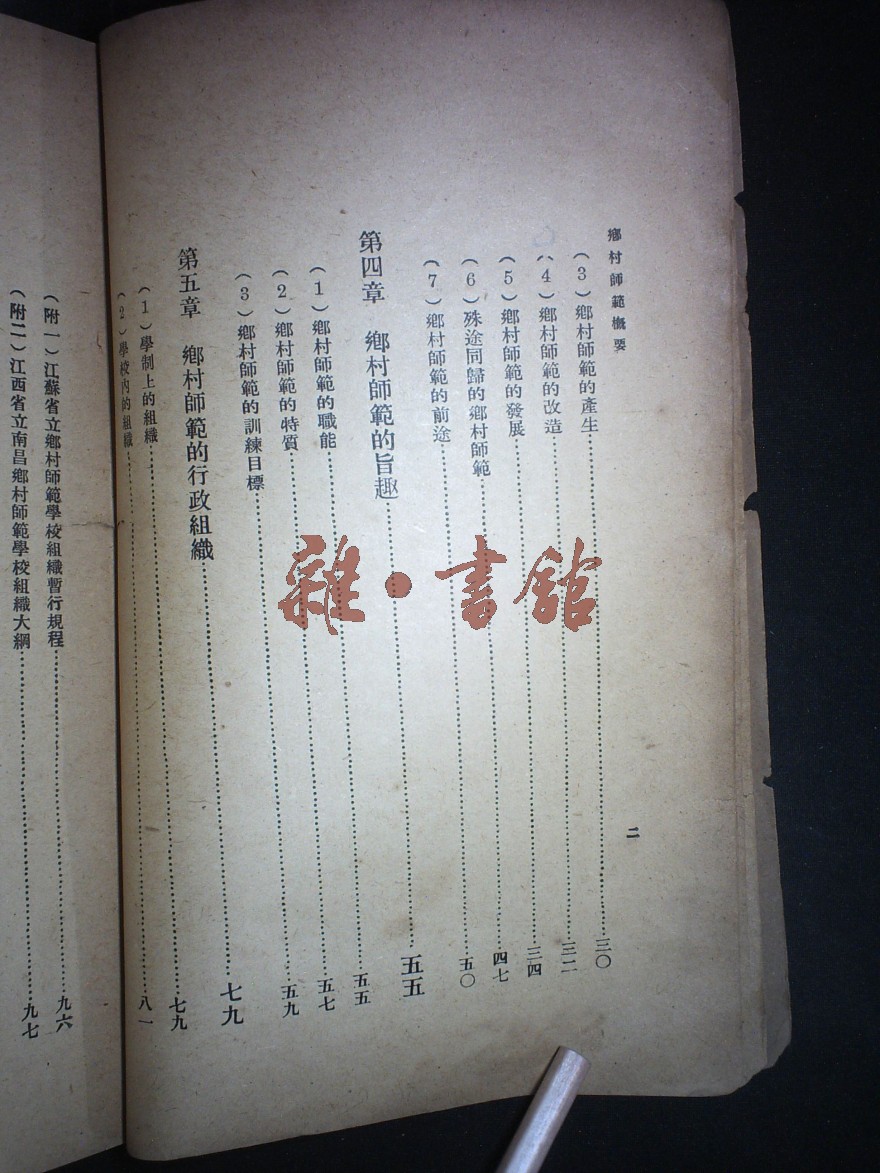 鄉村師範概要
二
(3)鄉村師範的產生……三〇
(4)鄉村師範的改造……三二
(5)鄉村師範的發展……三四
(6)殊途同歸的鄉村師範……四七
(7)鄉村師範的前途……五〇
第四章 鄉村師範的旨趣……五五
(1)鄉村師範的職能……五五
(2)鄉村師範的特質……五七
(3)鄉村師範的訓練目標……五九
第五章 鄉村師範的行政組織……七九
(1)學制上的組織……七九
(2)學校內的組織……八一
(附一)江蘇省立鄉村師範學校組織暫行規程……九六
(附二)江西省立南昌鄉村師範學校組織大綱……九七
雜·書館